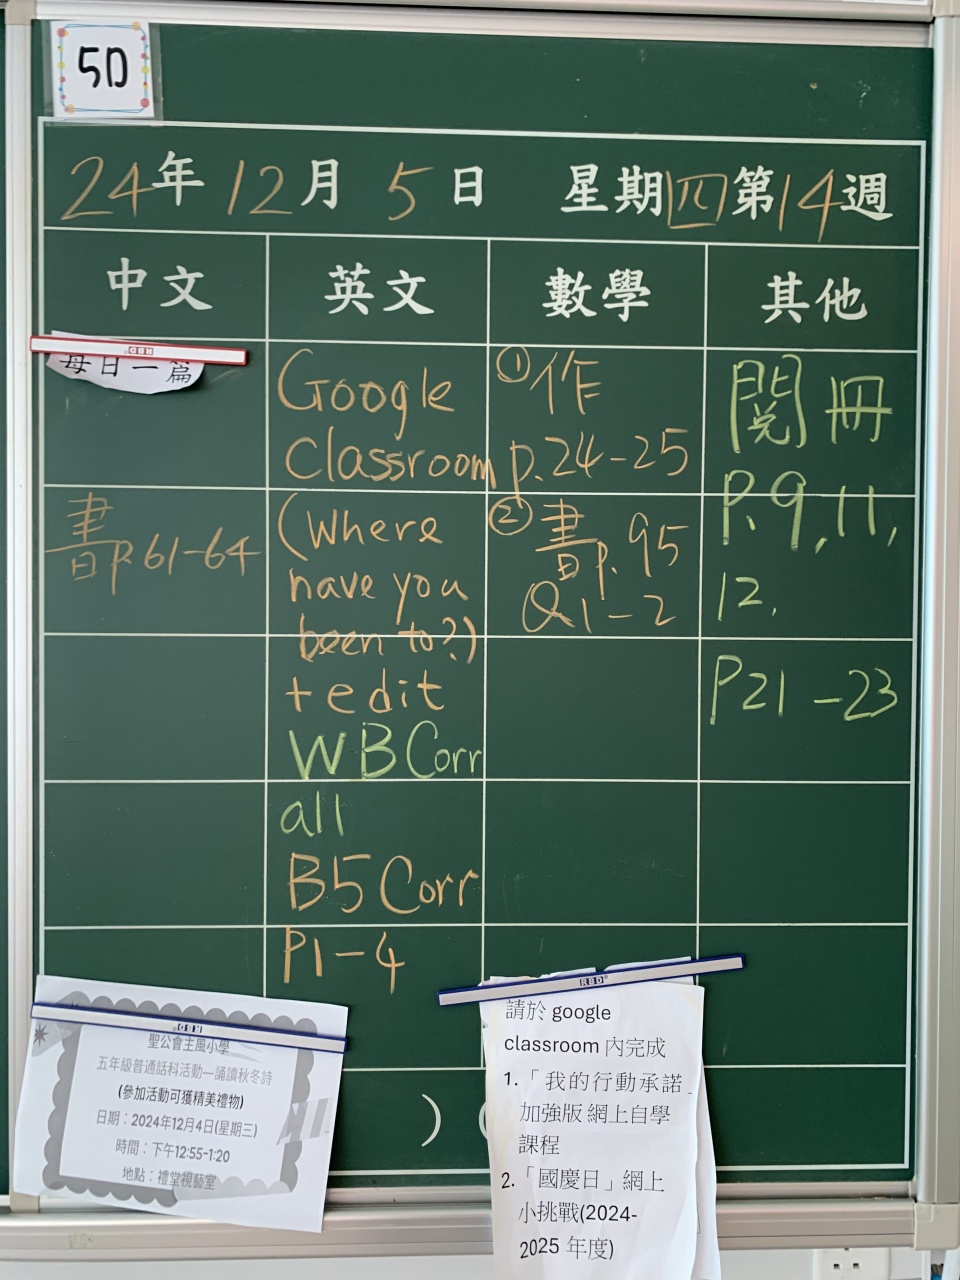 5D
24年12月5日 星期四第14週
中文 英文 數學 其他
每日一篇
書p.61-64
Google
Classroom
(Where
have you
been to?)
+ edit
WB Corr
all
B5 Corr
P1-4
① 作
p.24-25
② 書p.95
Q1-2
閱冊
P.9,11,
12,
P21-23
RBD
聖公會主風小學
五年級普通話科活動—誦讀秋冬詩
(參加活動可獲精美禮物)
日期：2024年12月4日(星期三)
時間：下午12:55-1:20
地點：禮堂視藝室
)
RBD
請於 google
classroom 內完成
1.「我的行動承諾
加強版 網上自學
課程
2.「國慶日」網上
小挑戰(2024-
2025 年度)